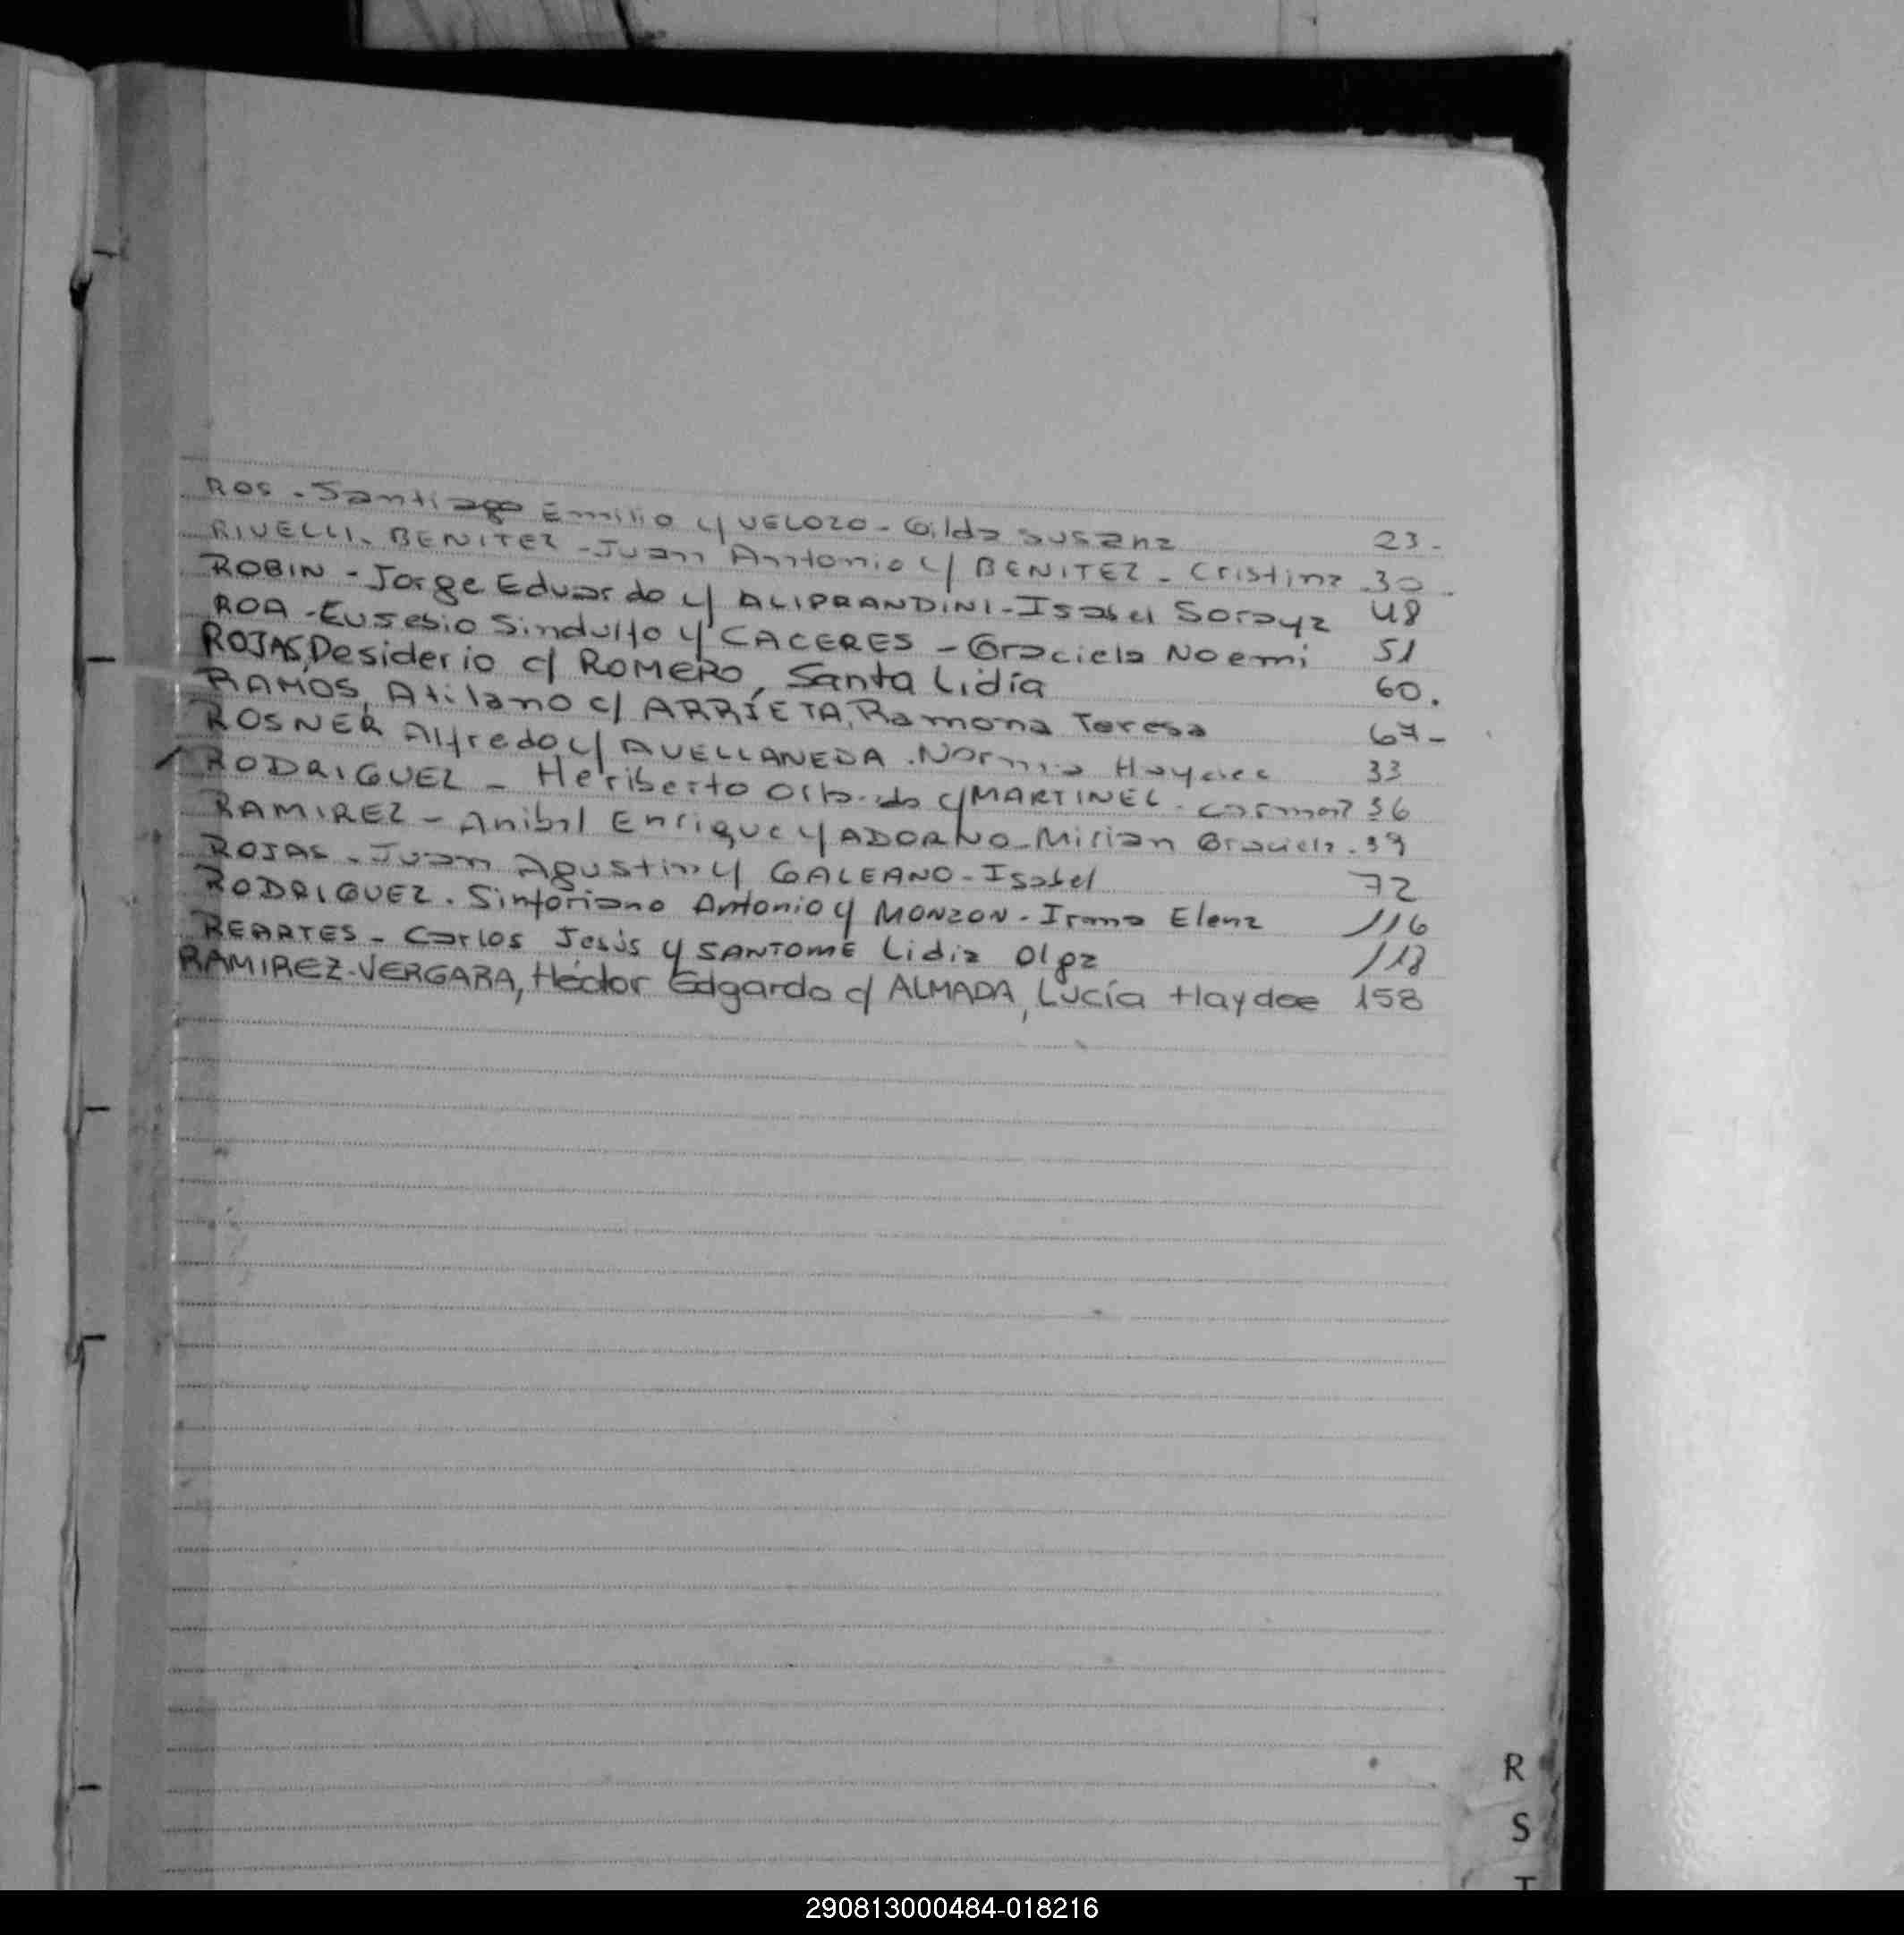 ROS - Santiago Emilio c/ VELOZO - Gilda Susana 23 -
RIVELLI - BENITEZ - Juan Antonio c/ BENITEZ - Cristina 30 -
ROBIN - Jorge Eduardo c/ ALIPRANDINI - Isabel Soraya 48
ROA - Eusebio Sindulfo c/ CACERES - Graciela Noemi 51
ROJAS, Desiderio c/ ROMERO, Santa Lidia 60.
RAMOS, Atilano c/ ARRIETA, Ramona Teresa 67 -
ROSNER Alfredo c/ AVELLANEDA - Norma Haydee 33
RODRIGUEZ - Heriberto Orlando c/ MARTINEZ - 36
RAMIREZ - Anibal Enrique c/ ADORNO - Mirian Graciela - 39
ROJAS - Juan Agustin c/ GALEANO - Isabel 72
RODRIGUEZ - Sinforiano Antonio c/ MONZON - Irma Elena 116
REARTES - Carlos Jesús c/ SANTOME Lidia Olga 118
RAMIREZ-VERGARA, Héctor Edgardo c/ ALMADA, Lucía Haydee 158
R
S
T
290813000484-018216